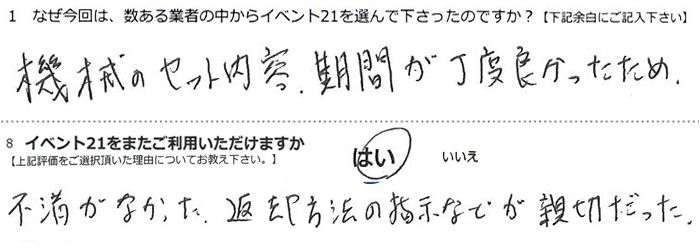 1 なぜ今回は、数ある業者の中からイベント21を選んで下さったのですか？【下記余白にご記入下さい】
機械のセット内容、期間が丁度良かったため。
8 イベント21をまたご利用いただけますか
【上記評価をご選択頂いた理由についてお教え下さい。】
はい いいえ
不満がなかった。返却方法の指示などが親切だった。